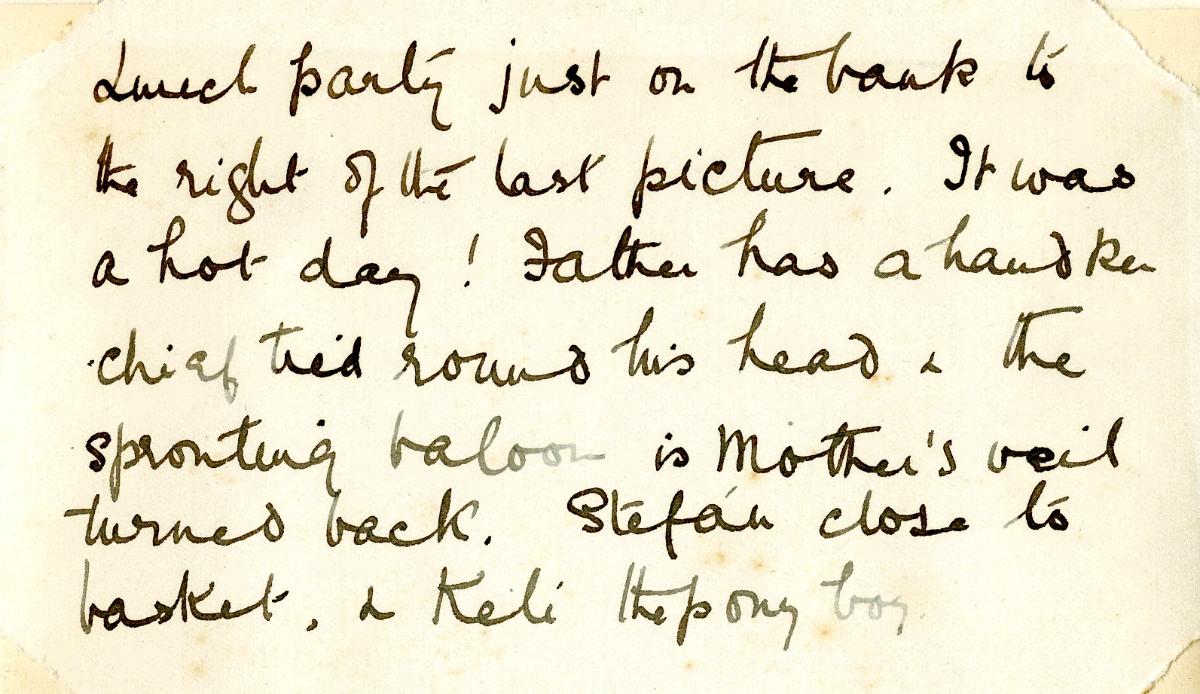 Lunch party just on the bank to
the right of the last picture. It was
a hot day! Father has a handker
chief tied round his head & the
sprouting baloon is Mother's veil
turned back. Stefán close to
basket, & Keli the pony boy